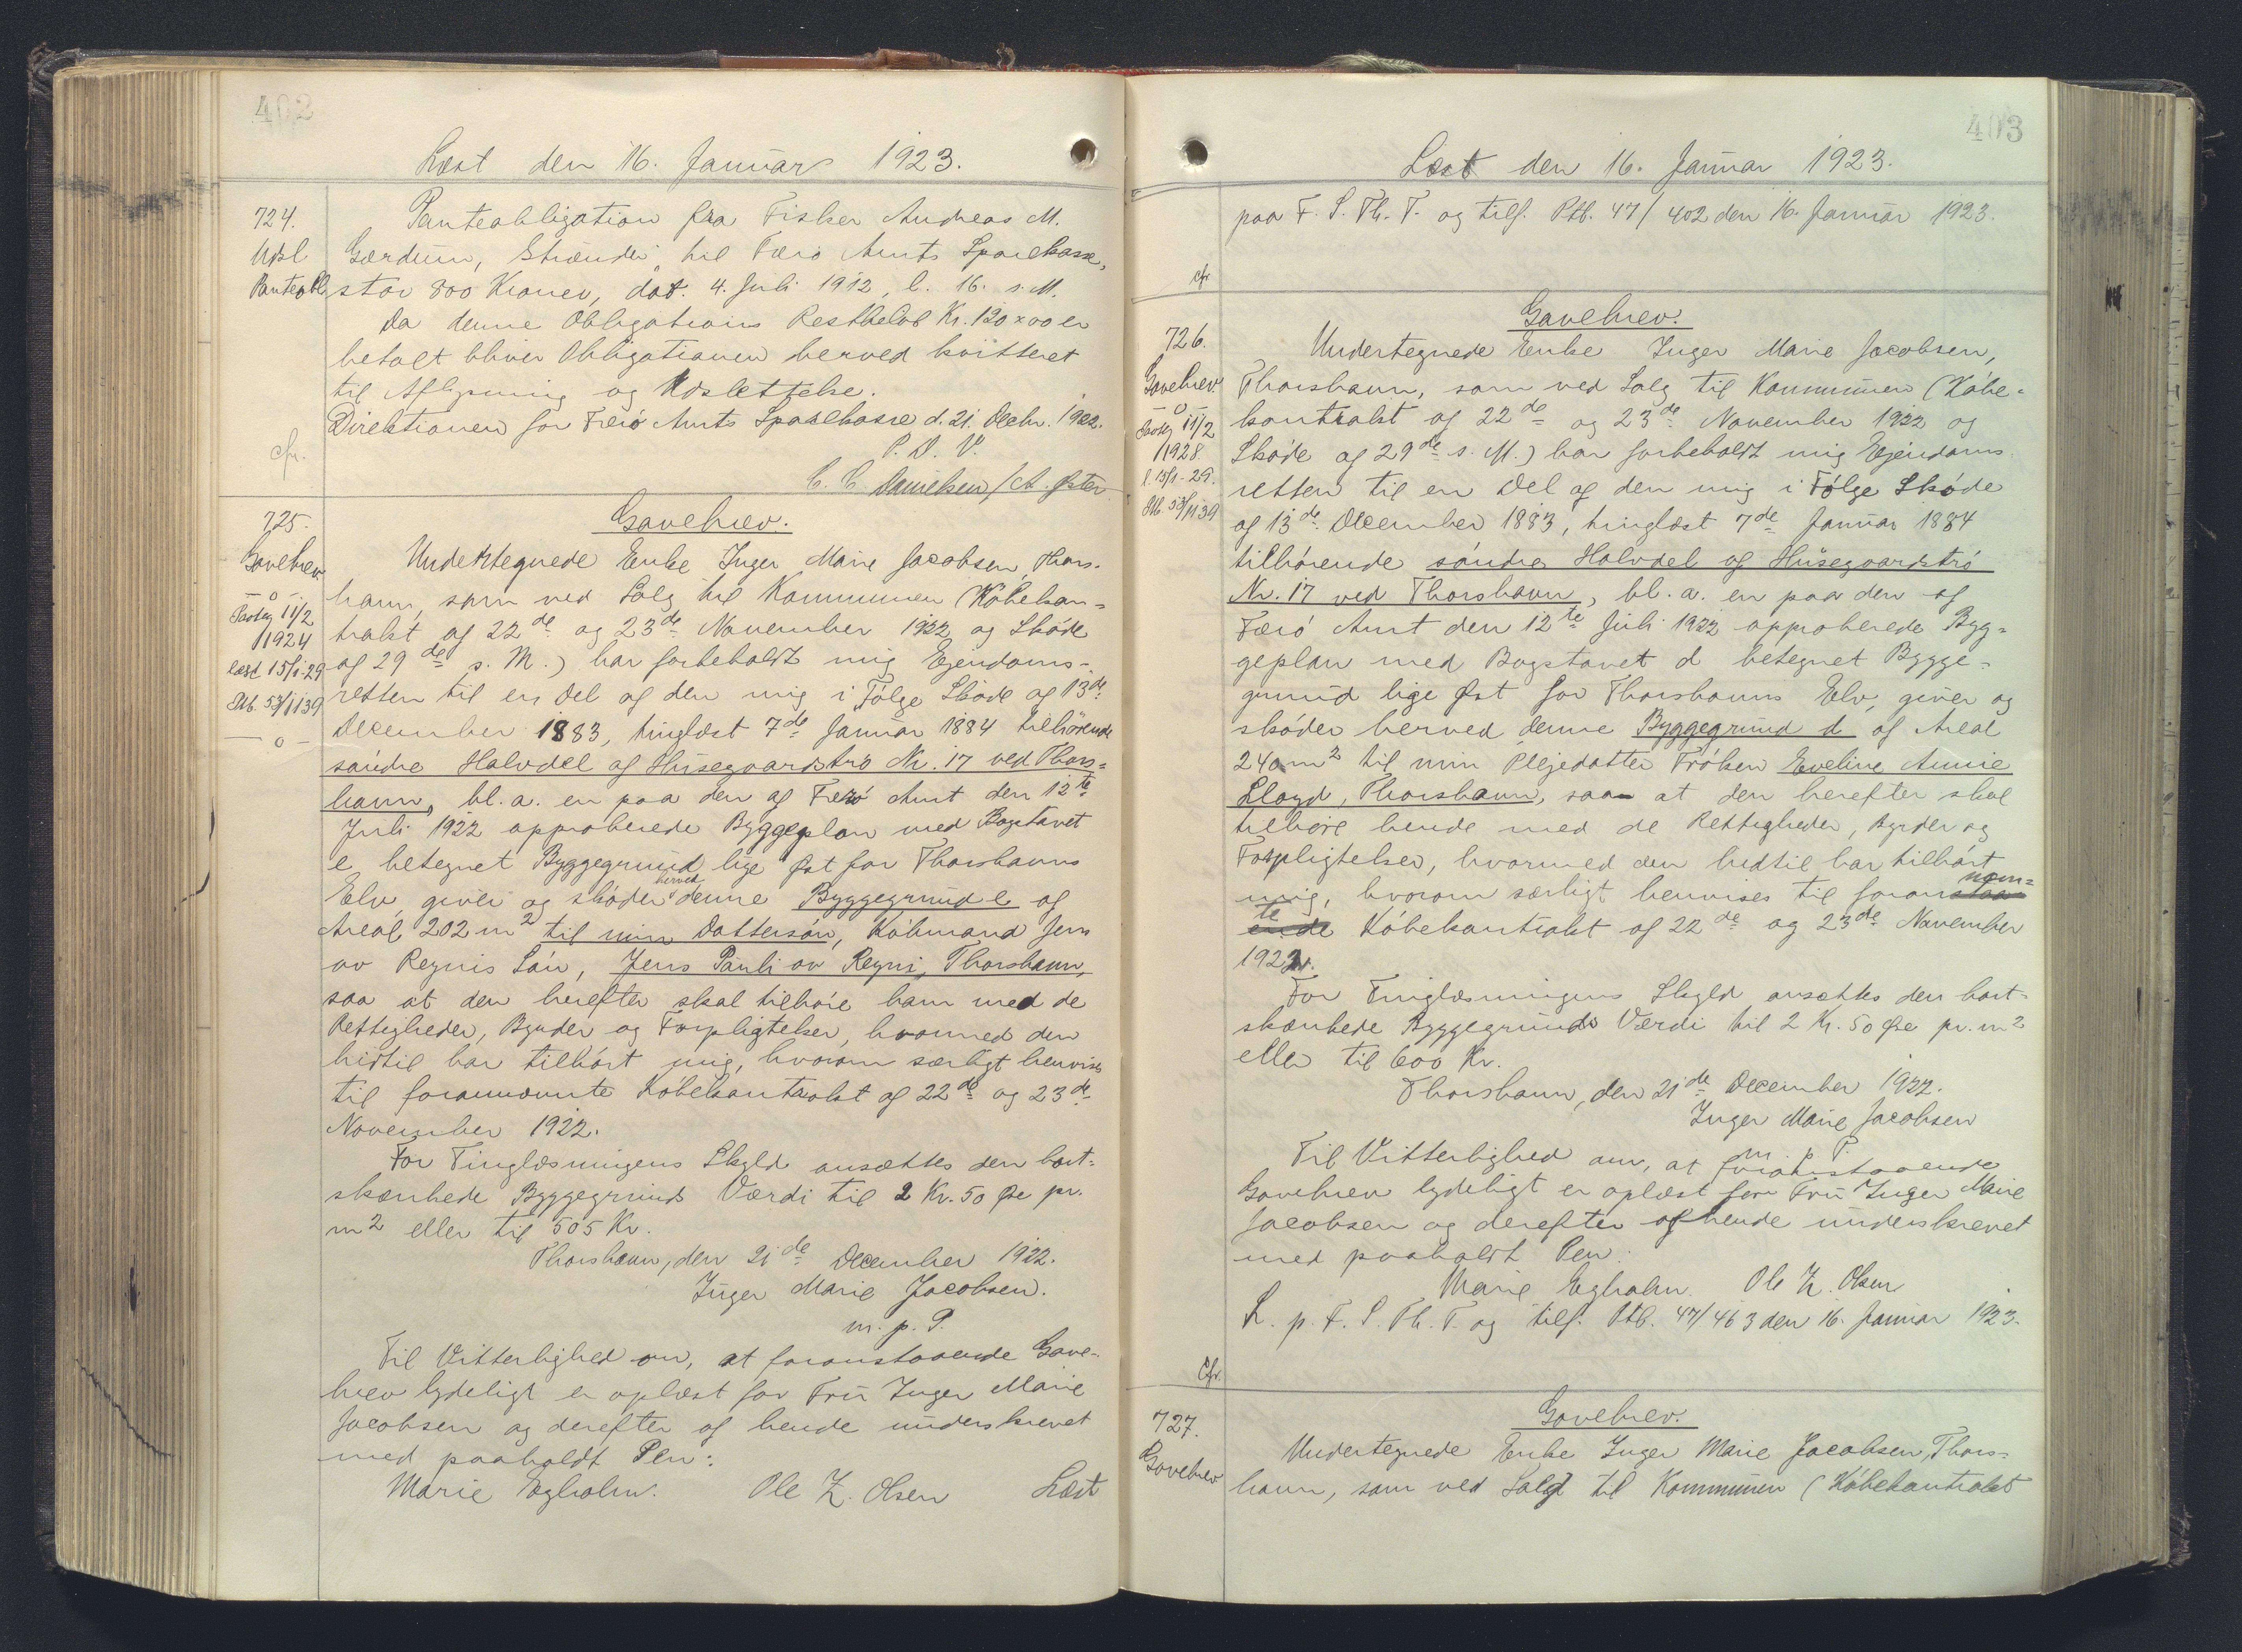 402
Læst den 16. Januar 1923.
724.
Udsl.
Panteobl.
Panteobligation fra Fisker Andreas M.
Gærdum, Strænder til Færø Amts Sparekasse,
stor 800 Kroner, dat. 4. Juli 1912, l. 16. s. M.
Da denne Obligations Restbeløb Kr. 120 x 00 er
betalt bliver Obligationen herved kvitteret
til Aflysning og Udslettelse.
Direktionen for Færø Amts Sparekasse d. 21. Decbr. 1922.
P. D. V.
C. C. Danielsen / A. Øster
cfr.
725.
Gavebrev
— o —
Paateg 11/2
1924
læst 15/1-29
Sktb. 53/1139
— o —
Gavebrev.
Undertegnede Enke Inger Marie Jacobsen, Thors-
havn, som ved Salg til Kommunen (Købekon-
trakt af 22de og 23de November 1922 og Skøde
af 29de s. M.) har forbeholdt mig Ejendoms-
retten til en Del af den mig i Følge Skøde af 13de
December 1883, tinglæst 7de Januar 1884 tilhørende
søndre Halvdel af Husegaardstrø Nr. 17 ved Thors-
havn, bl. a. en paa den af Færø Amt den 12te
Juli 1922 approberede Byggeplan med Bogstavet
e betegnet Byggegrund lige Øst for Thorshavns
Elv, giver og skøder herved denne Byggegrund e af
Areal 202 m2 til min Dattersøn, Købmand Jens
av Reynis Søn, Jens Pauli av Reyni, Thorshavn,
saa at den herefter skal tilhøre ham med de
Rettigheder, Byrder og Forpligtelser, hvormed den
hidtil har tilhørt mig, hvorom særligt henvises
til forannævnte Købekontrakt af 22de og 23de
November 1922.
For Tinglæsningens Skyld ansættes den bort-
skænkede Byggegrunds Værdi til 2 Kr. 50 Øre pr.
m2 eller til 505 Kr.
Thorshavn, den 21de December 1922.
Inger Marie Jacobsen.
m. p. P.
Til Vitterlighed om, at foranstaaende Gave-
brev lydeligt er oplæst for Fru Inger Marie
Jacobsen og derefter af hende underskrevet
med paaholdt Pen:
Marie Egholm. Ole Z. Olsen Læst
403
Læst den 16. Januar 1923.
paa F. S. Th. T. og tilf. Ptb. 47/402 den 16. Januar 1923.
cfr.
726.
Gavebrev
— o —
Paateg 11/2
1928.
l. 15/1-29.
Sktb. 53/1139
Gavebrev.
Undertegnede Enke Inger Marie Jacobsen,
Thorshavn, som ved Salg til Kommunen (Købe-
kontrakt af 22de og 23de November 1922 og
Skøde af 29de s. M.) har forbeholdt mig Ejendoms
retten til en Del af den mig i Følge Skøde
af 13de December 1883, tinglæst 7de Januar 1884
tilhørende søndre Halvdel af Husegaardstrø
Nr. 17 ved Thorshavn, bl. a. en paa den af
Færø Amt den 12te Juli 1922 approberede Byg-
geplan med Bogstavet d betegnet Bygge-
grund lige Øst for Thorshavns Elv, giver og
skøder herved denne Byggegrund d af Areal
240 m2 til min Plejedatter Frøken Eveline Annie
Lloyd, Thorshavn, saa at den herefter skal
tilhøre hende med de Rettigheder, Byrder og
Forpligtelser, hvormed den hidtil har tilhørt
mig, hvorom særligt henvises til forannævn-
te Købekontrakt af 22de og 23de November
1922.
For Tinglæsningens Skyld ansættes den bort-
skænkede Byggegrunds Værdi til 2 Kr. 50 Øre pr. m2
eller til 600 Kr.
Thorshavn, den 21de December 1922.
Inger Marie Jacobsen
m. p. P.
Til Vitterlighed om, at foranstaaende
Gavebrev lydeligt er oplæst for Fru Inger Marie
Jacobsen og derefter af hende underskrevet
med paaholdt Pen:
Marie Egholm. Ole Z. Olsen
L. p. F. S. Th. T. og tilf. Ptb. 47/463 den 16. Januar 1923.
Cfr.
727.
Gavebrev
Gavebrev.
Undertegnede Enke Inger Marie Jacobsen, Thors-
havn, som ved Salg til Kommunen (Købekontrakt